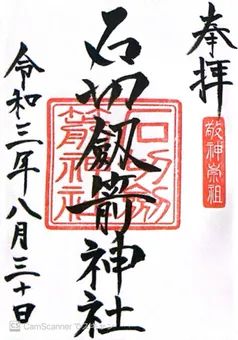 奉拝
敬神崇祖
石切劔箭神社
石切劔
箭神社
令和三年八月三十日
CamScanner でスキャン